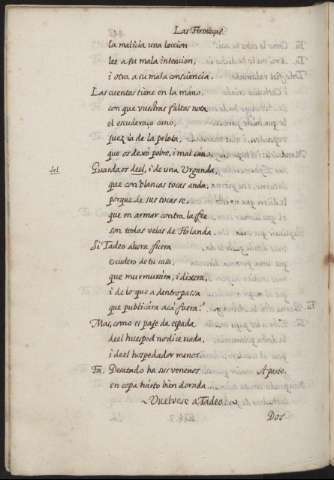 Las Firmezas
la malicia una leccion
lee a su mala intencion,
i otra a su mala consciencia.
Las cuentas tiene en la mano,
con que vuestras faltas nota
el escuderazo cano,
juez ia de la pelota,
que os dexò pobre, i mal sano.
del. Guardaos del, i de una Urganda,
que con blancas tocas anda,
porque de sus tocas se,
que en armar contra la fee
son todas velas de Holanda
Si Tadeo ahora fuera
escudero de tu casa,
que murmurara, i dixera,
i de lo que a dentro passa
que publicara acà fuera?
Mas, como el page de espada
de el huesped no dice nada,
i de el hospedador menos.
Ta. Desatado ha sus venenos Aparte.
en copa harto bien dorada.
Vuelvese a Tadeo.
Dos